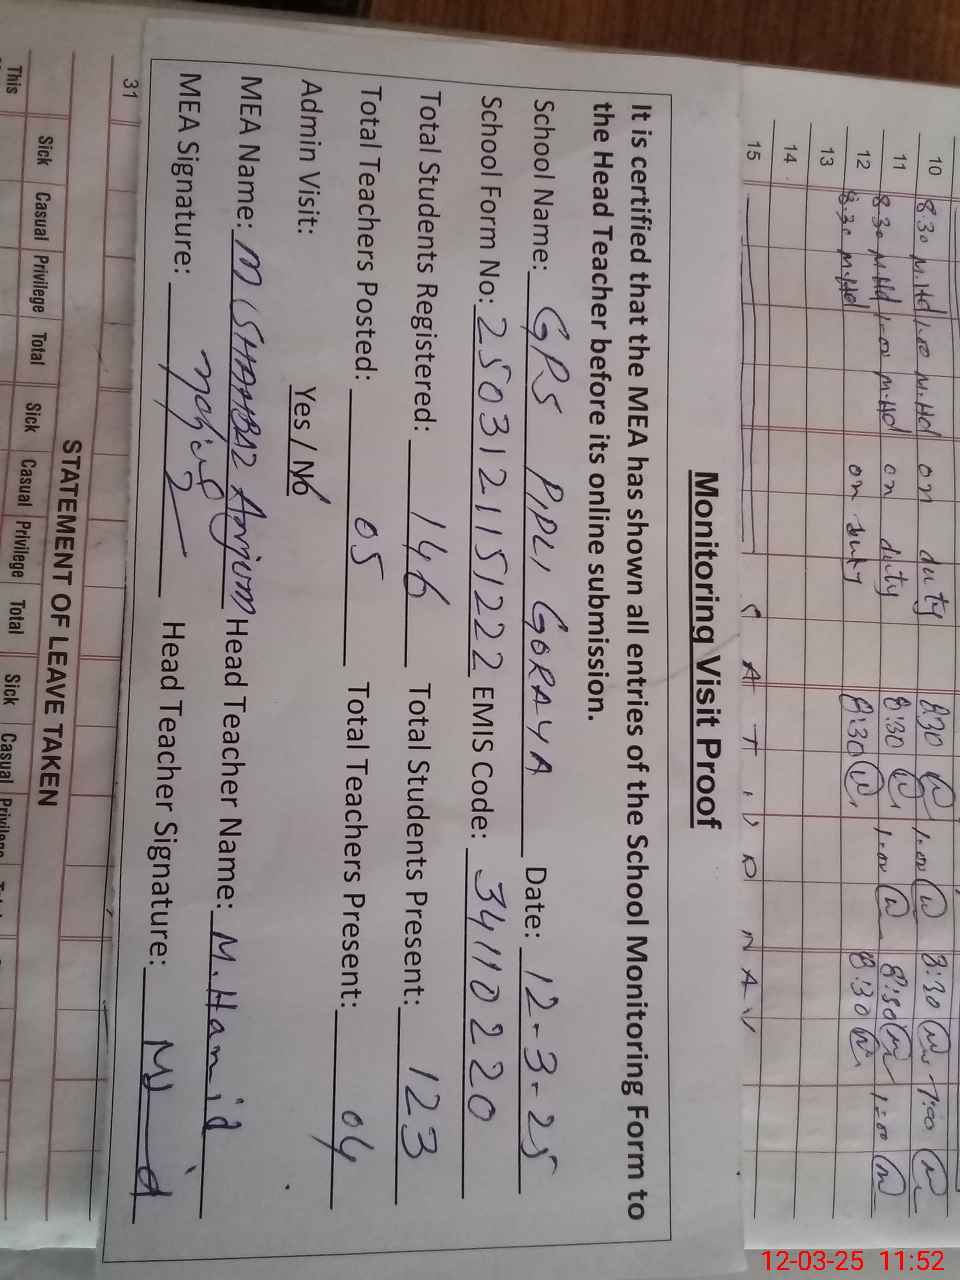 10 8.30 M.Hd 1.00 M.Hd on duty 8:30 1.00 8:30 1:00
11 8.30 M.Hd 1.00 M.Hd on duty 8:30 1.00 8:30 1:00
12 8.30 M.Hd on duty 8:30 8:30
13
14
15
Monitoring Visit Proof
It is certified that the MEA has shown all entries of the School Monitoring Form to
the Head Teacher before its online submission.
School Name: GPS PIPLI GORAYA Date: 12-3-25
School Form No: 2503121151222 EMIS Code: 34110220
Total Students Registered: 146 Total Students Present: 123
Total Teachers Posted: 05 Total Teachers Present: 04
Admin Visit: Yes / No
MEA Name: M SHAHBAZ Anjum Head Teacher Name: M.Hamid
MEA Signature: Head Teacher Signature:
31
STATEMENT OF LEAVE TAKEN
Sick Casual Privilege Total Sick Casual Privilege Total Sick Casual Privilege
This
12-03-25 11:52